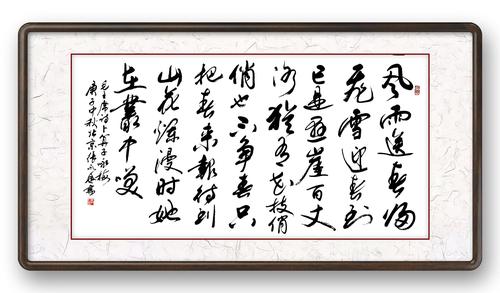 风雨送春归
飞雪迎春到
已是悬崖百丈
冰犹有花枝俏
俏也不争春只
把春来报待到
山花烂漫时她
在叢中笑
毛主席诗卜算子咏梅
庚子中秋北京